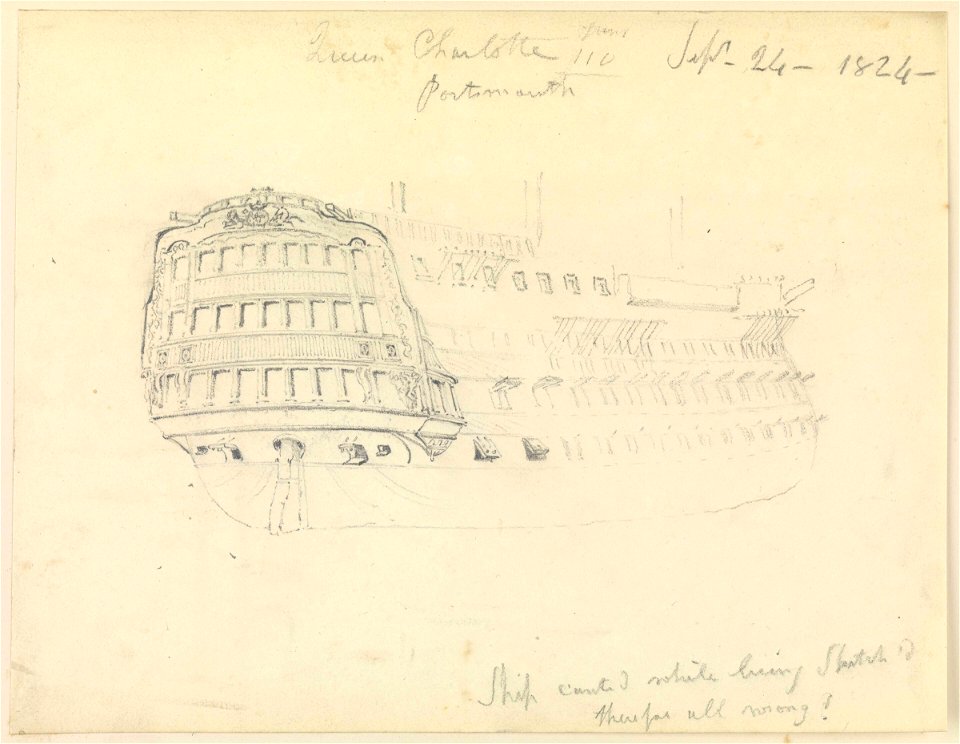 Queen Charlotte Guns 110 Sepr - 24 - 1824 -
Portsmouth
Ship canted while being Sketch'd
therefor all wrong!